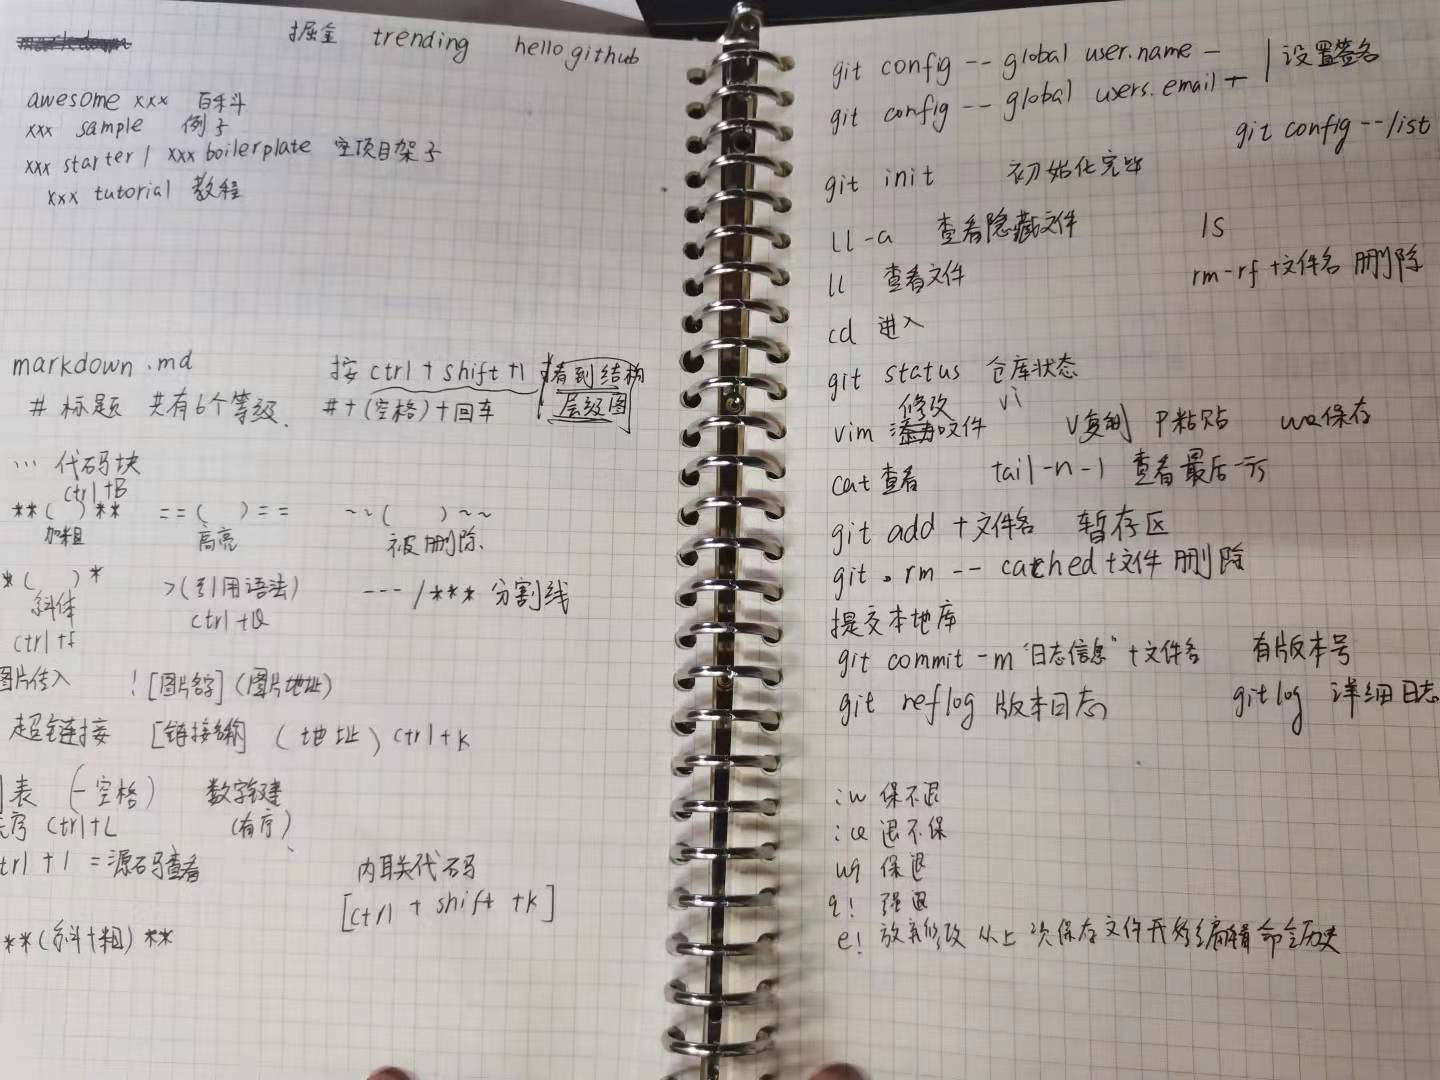 掘金 trending hellogithub
awesome xxx 百科
xxx sample 例子
xxx starter / xxx boilerplate 空项目架子
xxx tutorial 教程
markdown .md 按 ctrl + shift +1 看到结构
# 标题 共有6个等级. #+(空格)+回车 层级图
... 代码块
ctrl+B
**( )** ==( )== ~~( )~~
加粗 高亮 被删除.
*( )* >(引用语法) ---/*** 分割线
斜体 ctrl+Q
ctrl+I
图片传入 ![图片名字](图片地址)
超链接 [链接名称] (地址) ctrl+k
表 (-空格) 数字键
序 ctrl+L (有序)
trl+1 =源码查看 内联代码
[ctrl + shift +k]
**(斜+粗)**
git config -- global user.name - | 设置签名
git config -- global users.email +
git config --list
git init 初始化完毕
ll -a 查看隐藏文件 ls
ll 查看文件 rm-rf +文件名 删除
cd 进入
git status 仓库状态
修改 vi
vim 文件 v复制 P粘贴 wq保存
cat 查看 tail-n-1 查看最后一行
git add +文件名 暂存区
git rm -- cached +文件 删除
提交本地库
git commit -m "日志信息" +文件名 有版本号
git reflog 版本日志 git log 详细日志
:w 保不退
:q 退不保
wq 保退
q! 强退
e! 放弃修改 从上次保存文件开始编辑 命令历史